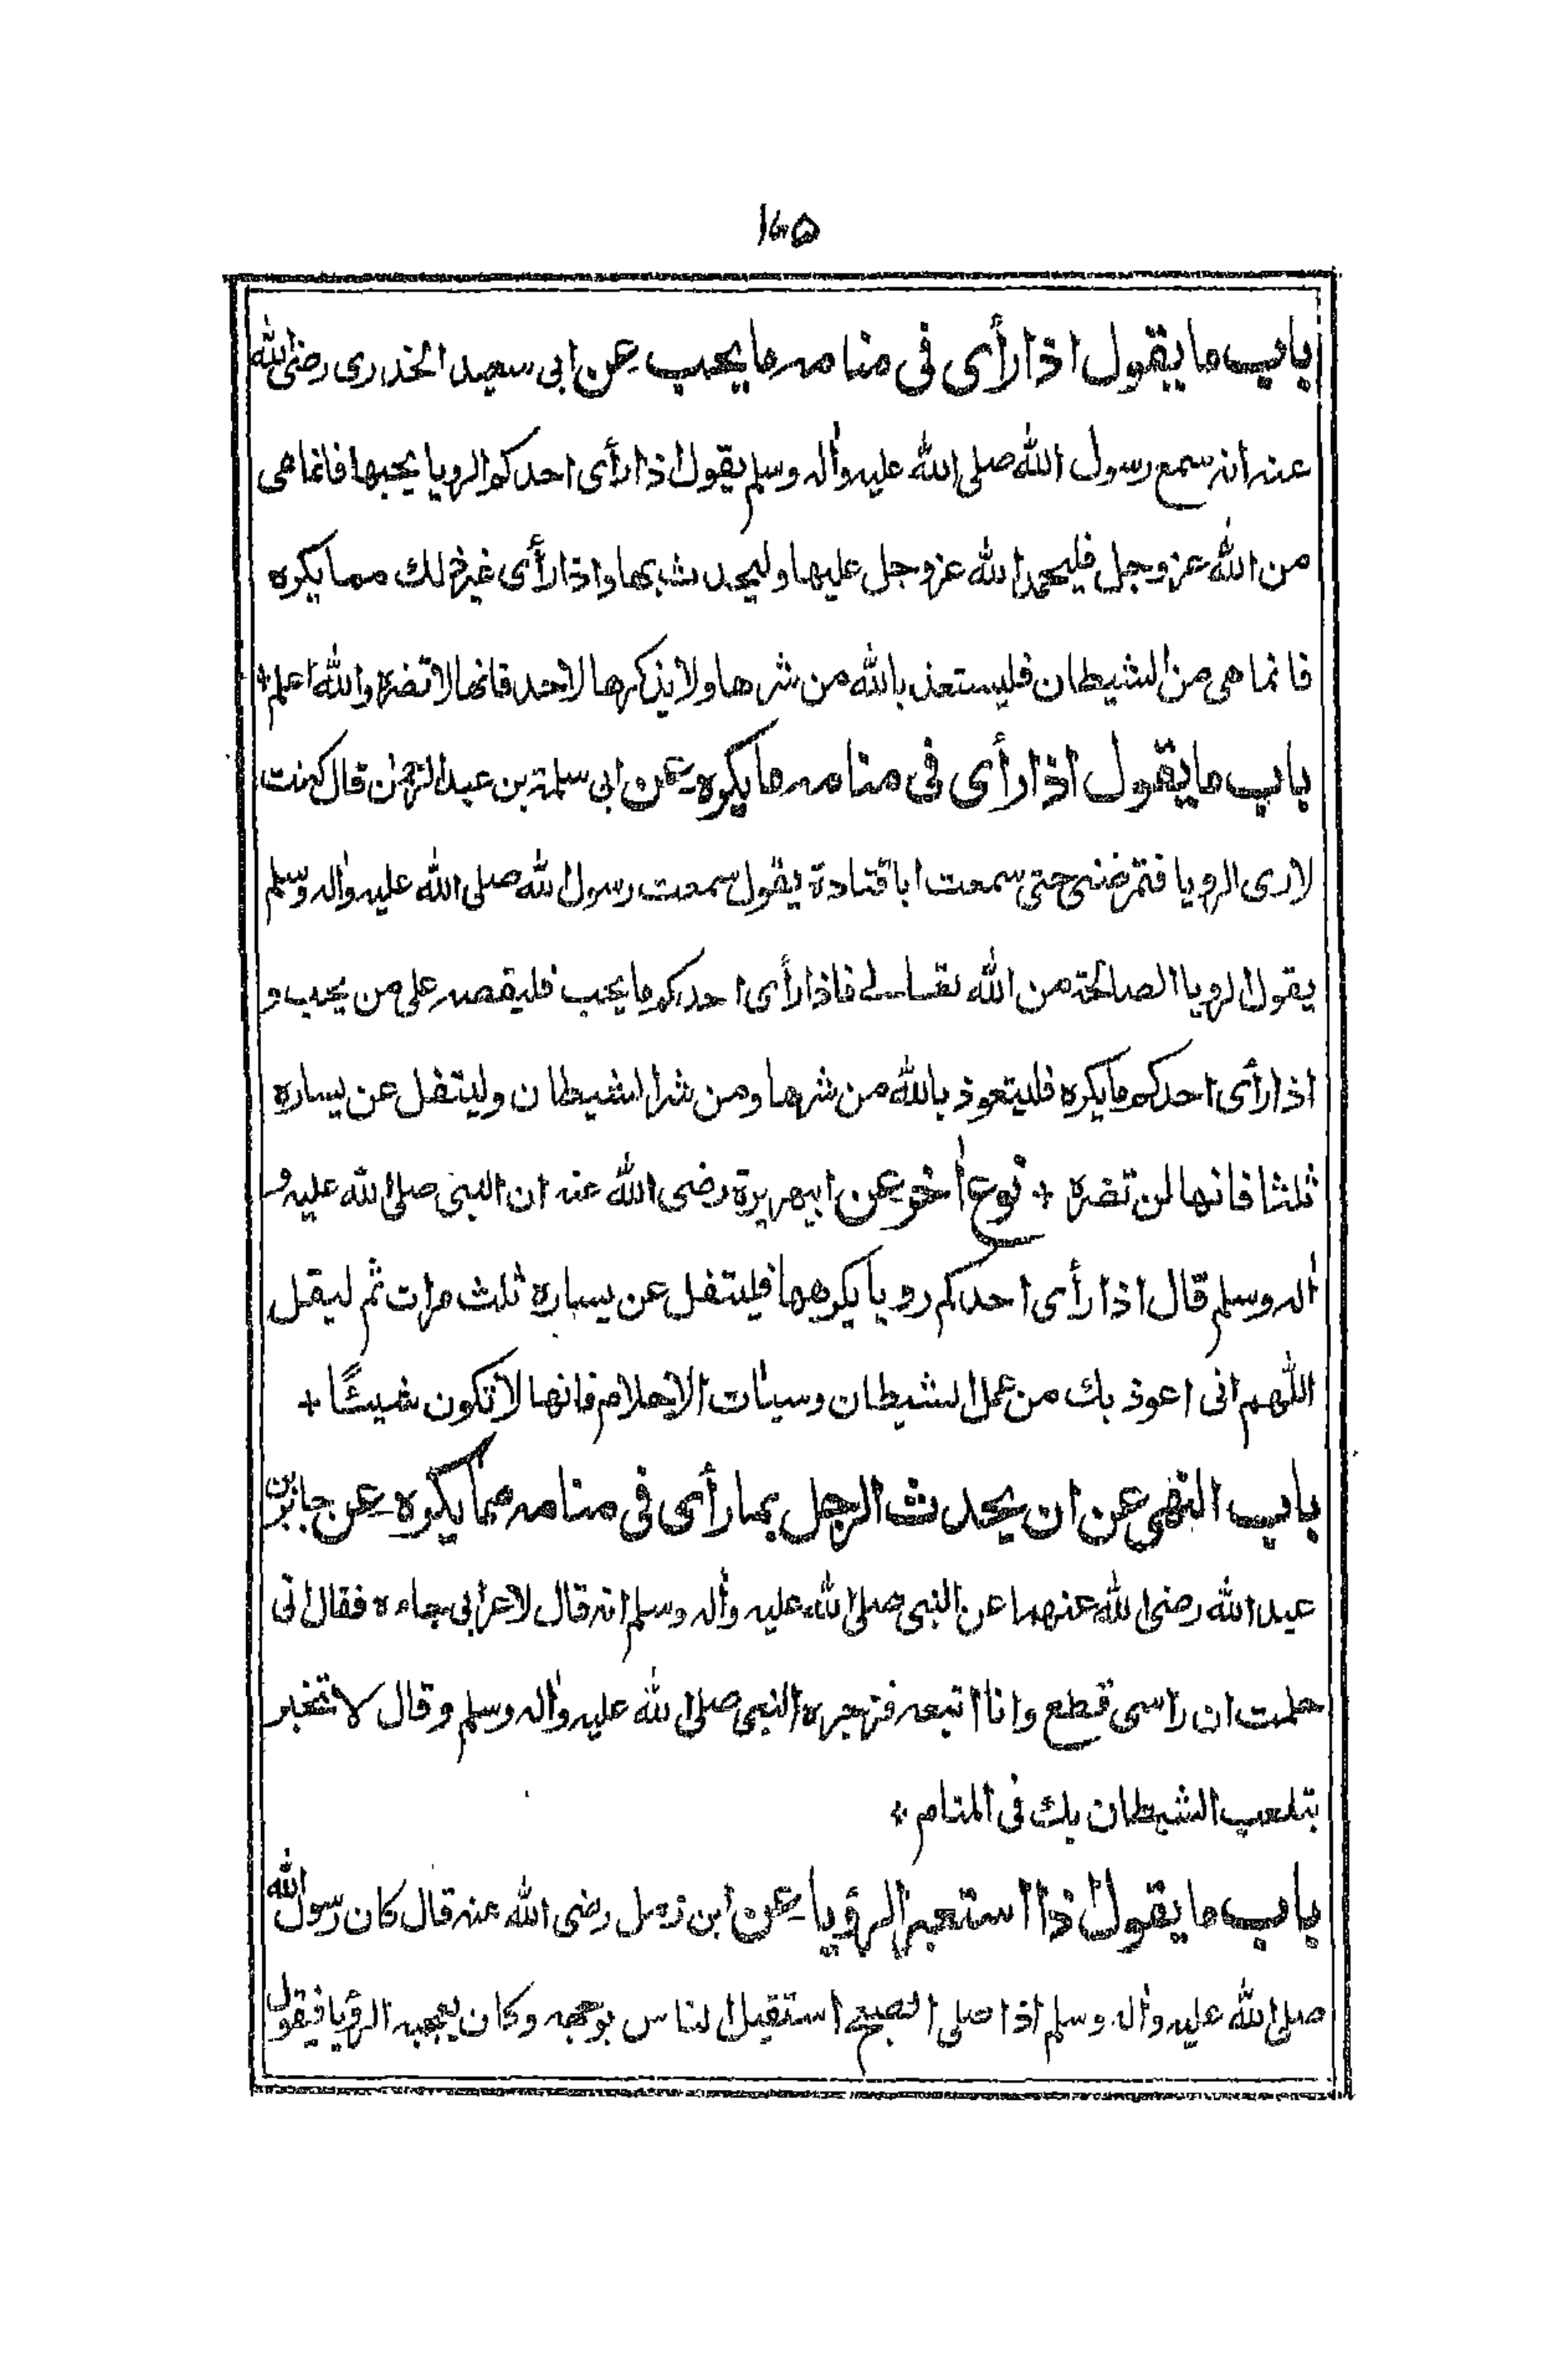 ۱۶۵
باب ما يقول اذا رأى فى منامه ما يحب عن ابى سعيد الخدرى رضى الله
عنه انه سمع رسول الله صلى الله عليه واٰله وسلم يقول اذا رأى احدكم الرويا يحبها فانما هى
من الله عز وجل فليحمد الله عز وجل عليها وليحدث بها واذا رأى غير ذلك مما يكره
فانما هى من الشيطان فليستعذ بالله من شرها ولا يذكرها لاحد فانها لا تضره والله اعلم +
باب ما يقول اذا رأى فى منامه ما يكره عن ابى سلمة بن عبد الرحمٰن قال كنت
لارى الرويا فتمرضنى حتى سمعت ابا قتادة يقول سمعت رسول الله صلى الله عليه واٰله وسلم
يقول الرويا الصالحة من الله تعالے فاذا رأى احدكم ما يحب فليقصه على من يحب و
اذا رأى احدكم ما يكره فليتعوذ بالله من شرها ومن شر الشيطان وليتفل عن يساره
ثلثا فانها لن تضره + نوع اٰخر عن ابيهريرة رضى الله عنه ان النبى صلى الله عليه و
اٰله وسلم قال اذا رأى احدكم رويا يكرهها فليتفل عن يساره ثلث مرات ثم ليقل
اللهم انى اعوذ بك من عمل الشيطان وسيئات الاحلام فانها لا تكون شيئًا +
باب النهى عن ان يحدث الرجل بما رأى فى منامه مما يكره عن جابر بن
عبد الله رضى الله عنهما عن النبى صلى الله عليه واٰله وسلم انه قال لاعرابى جاءه فقال انى
حلمت ان راسى قطع وانا اتبعه فزجره النبى صلى الله عليه واٰله وسلم وقال لا تخبر
بتلعب الشيطان بك فى المنام +
باب ما يقول اذا استعبر الرؤيا عن ابن زمل رضى الله عنه قال كان رسول الله
صلى الله عليه واٰله وسلم اذا صلى الصبح استقبل الناس بوجهه وكان يعجبه الرؤيا فيقول